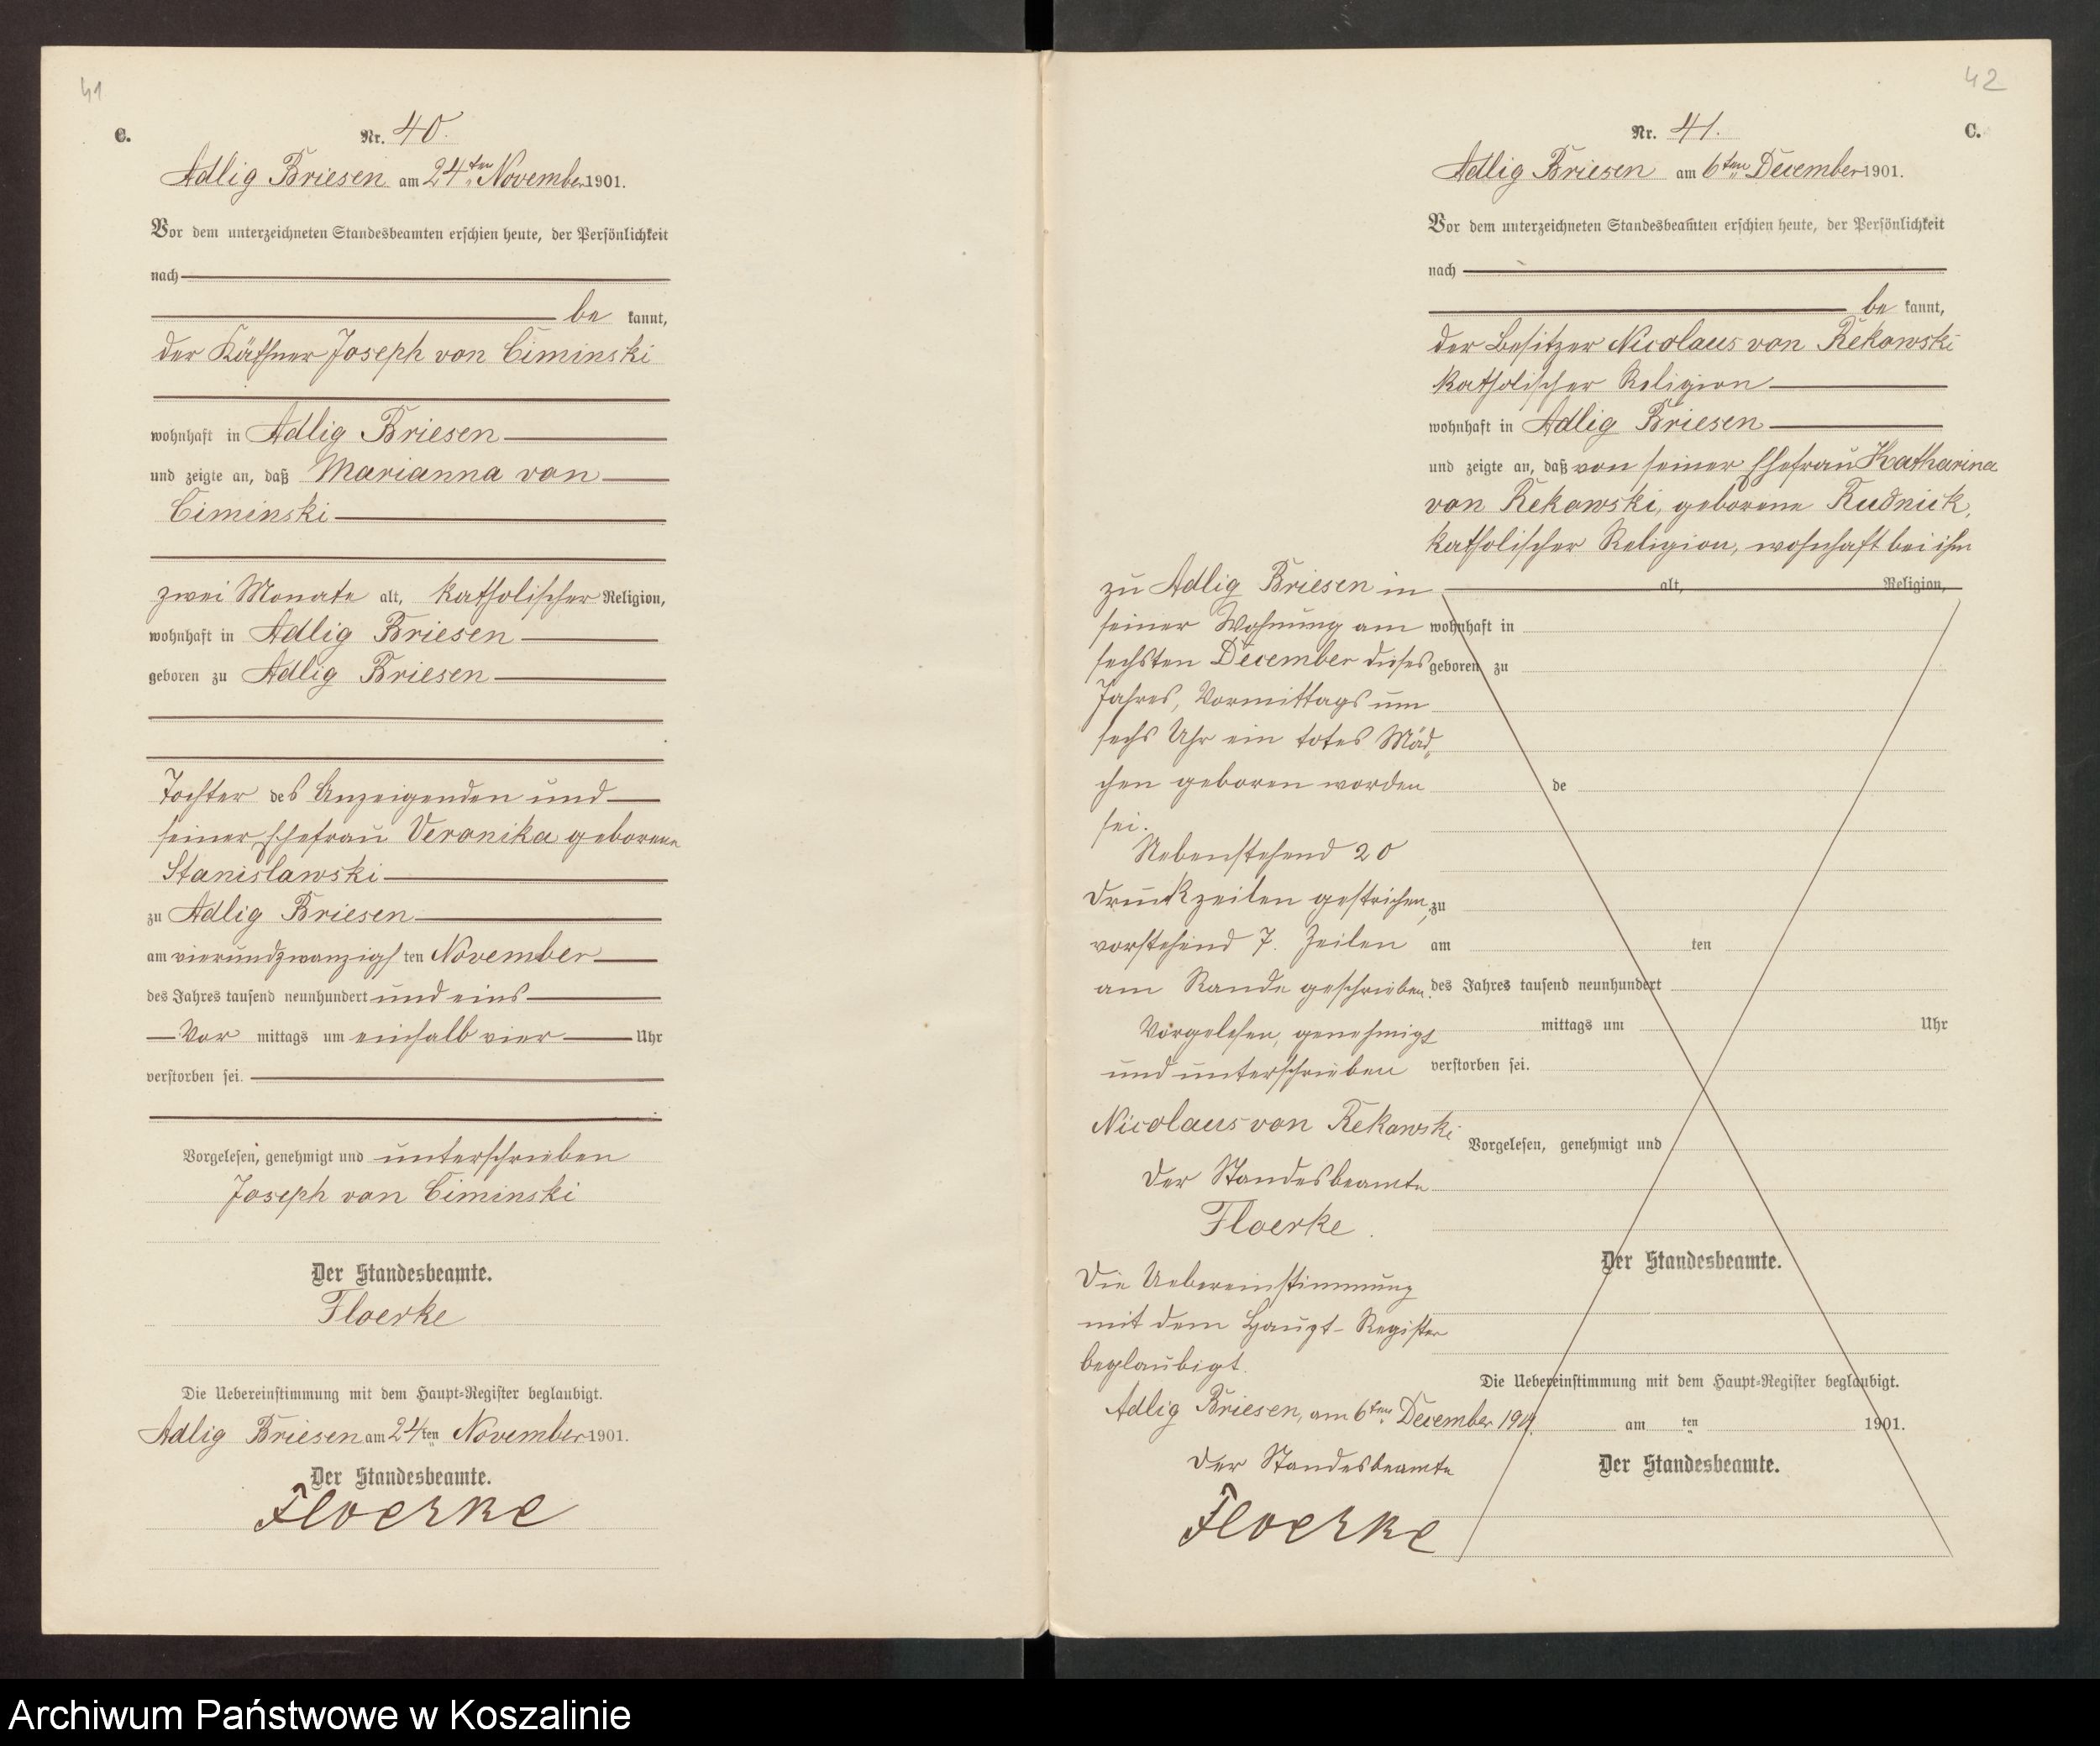 41
C.
Nr. 40.
Adlig Briesen am 24ten November 1901.
Vor dem unterzeichneten Standesbeamten erschien heute, der Persönlichkeit
nach
be kannt,
der Käthner Joseph von Ciminski
wohnhaft in Adlig Briesen
und zeigte an, daß Marianna von
Ciminski
zwei Monate alt, katholischer Religion,
wohnhaft in Adlig Briesen
geboren zu Adlig Briesen
Tochter des Anzeigenden und
seiner Ehefrau Veronika geborene
Stanislawski
zu Adlig Briesen
am vierundzwanzigsten November
des Jahres tausend neunhundert und eins
Vor mittags um einhalb vier Uhr
verstorben sei.
Vorgelesen, genehmigt und unterschrieben
Joseph von Ciminski
Der Standesbeamte.
Floerke
Die Uebereinstimmung mit dem Haupt-Register beglaubigt.
Adlig Briesen am 24ten November 1901.
Der Standesbeamte.
Floerke
42
Nr. 41.
C.
Adlig Briesen am 6ten December 1901.
Vor dem unterzeichneten Standesbeamten erschien heute, der Persönlichkeit
nach
be kannt,
der Besitzer Nicolaus von Rekowski
katholischer Religion
wohnhaft in Adlig Briesen
und zeigte an, daß von seiner Ehefrau Katharina
von Rekowski, geborene Rudnick,
katholischer Religion, wohnhaft bei ihm
zu Adlig Briesen in
seiner Wohnung am
sechsten December dieses
Jahres, Vormittags um
sechs Uhr ein totes Mäd-
chen geboren worden
sei.
Nebenstehend 20
Druckzeilen gestrichen,
vorstehend 7. Zeilen
am Rande geschrieben.
Vorgelesen, genehmigt
und unterschrieben
Nicolaus von Rekowski
Der Standesbeamte
Floerke.
Die Uebereinstimmung
mit dem Haupt-Register
beglaubigt.
Adlig Briesen, am 6ten December 1901.
Der Standesbeamte
Floerke
alt, Religion,
wohnhaft in
geboren zu
de
zu
am ten
des Jahres tausend neunhundert
mittags um Uhr
verstorben sei.
Vorgelesen, genehmigt und
Der Standesbeamte.
Die Uebereinstimmung mit dem Haupt-Register beglaubigt.
am ten 1901.
Der Standesbeamte.
Archiwum Państwowe w Koszalinie